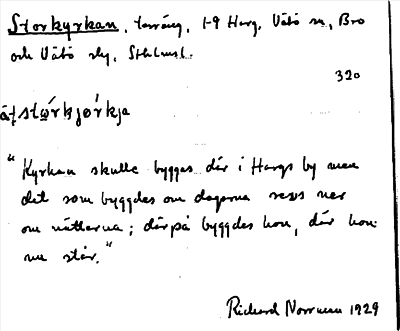 Storkyrkan, terräng, 1-9 Harg, Vätö sn, Bro
och Vätö skg, Sthlmsl.
320
stǫ́rkjǿrkja
"Kyrkan skulle byggas där i Hargs by men
det som byggdes om dagarna revs ner
om nätterna; därpå byggdes hon, där hon
nu står."
Richard Norrman 1929